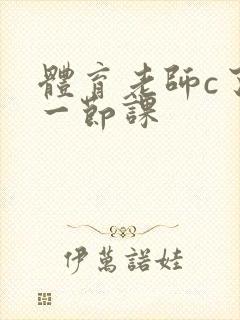 體育老師c了
一節課
伊萬諾娃